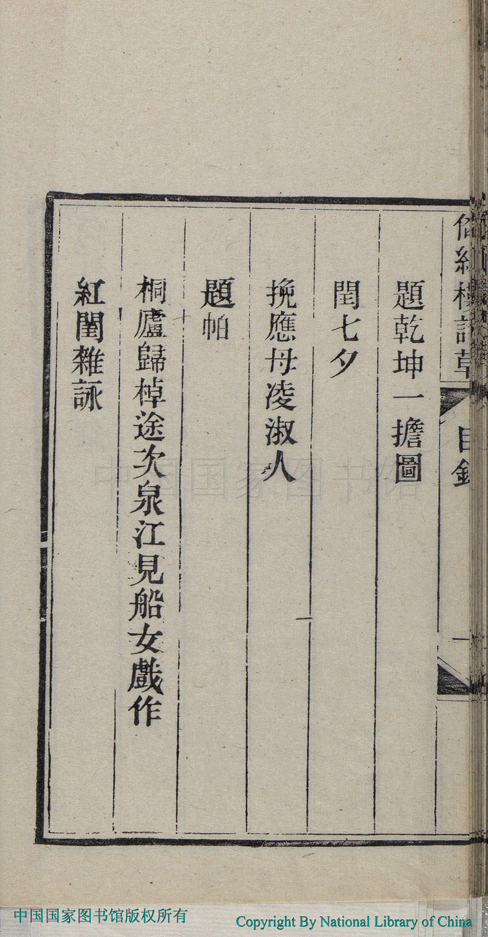 紅樓詩草
目錄
一
題乾坤一擔圖
閏七夕
挽應母凌淑人
題帕
桐廬歸棹途次泉江見船女戲作
紅閨雜詠
中国国家图书馆
中国国家图书馆版权所有
Copyright By National Library of China